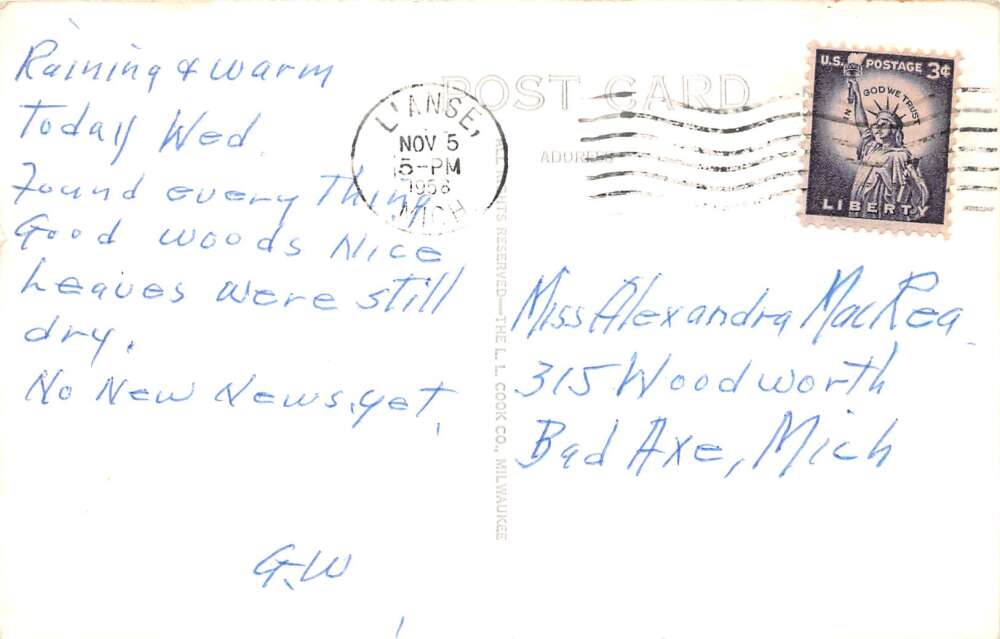 Raining & warm
Today Wed.
Found every Thing
Good woods Nice
Leaves were still
dry.
No New News, yet.
G.W
POST CARD
ADDRESS
L'ANSE,
NOV 5
5-PM
1958
MICH
U.S. POSTAGE 3¢
IN GOD WE TRUST
LIBERTY
ALL RIGHTS RESERVED—THE L. L. COOK CO., MILWAUKEE
Miss Alexandra MacRea
315 Woodworth
Bad Axe, Mich